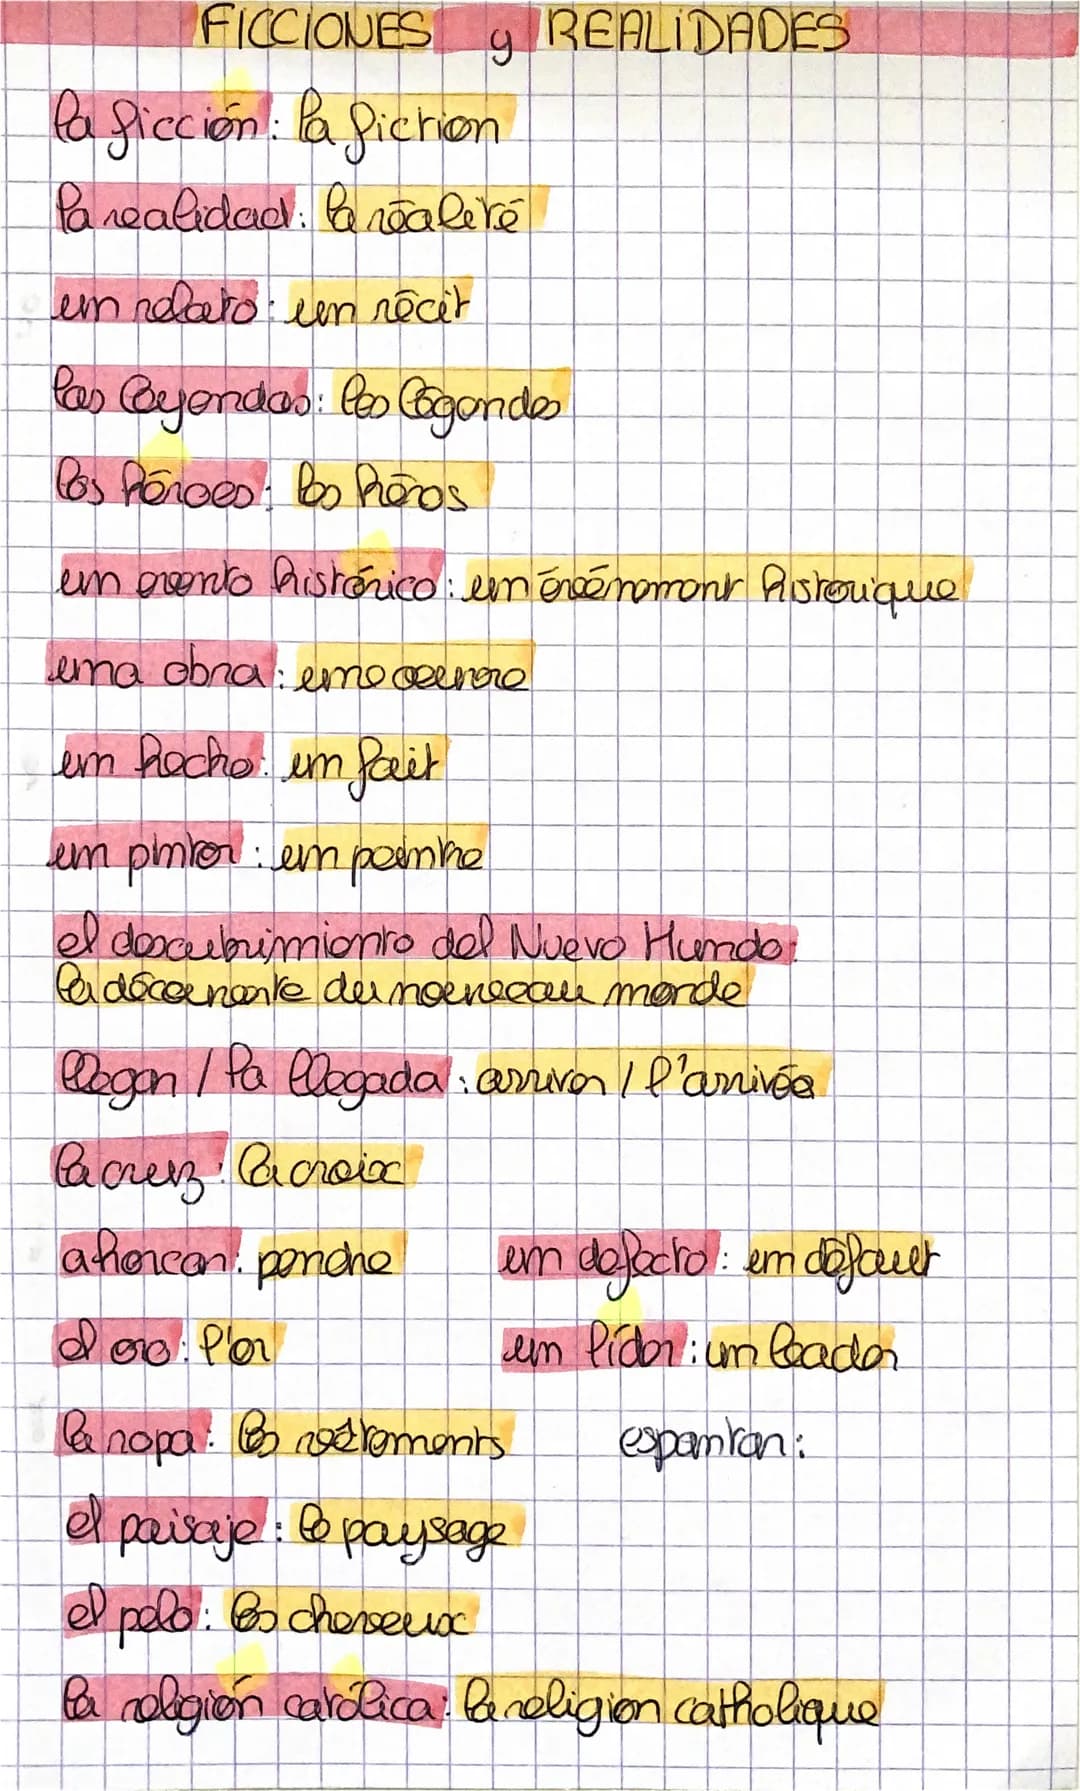 FICCIONES y REALIDADES
la ficción: la fiction
la realidad: la réalité
un relato: un récit
las leyendas: les légendes
los héroes: les héros
un evento histórico: un événement historique
una obra: une oeuvre
un hecho: un fait
un pintor: un peintre
el descubrimiento del Nuevo Mundo:
la découverte du nouveau monde
llegar / la llegada: arriver / l'arrivée
la cruz: la croix
ahorcar: pendre
un defecto: un défaut
el oro: l'or
un líder: un leader
la ropa: les vêtements
espantar:
el paisaje: le paysage
el pelo: les cheveux
la religión católica: la religion catholique